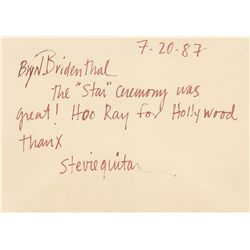 7-20-87
Bryn Bridenthal
The "Star" ceremony was
great! Hoo Ray for Hollywood
thanx
Stevieguitar